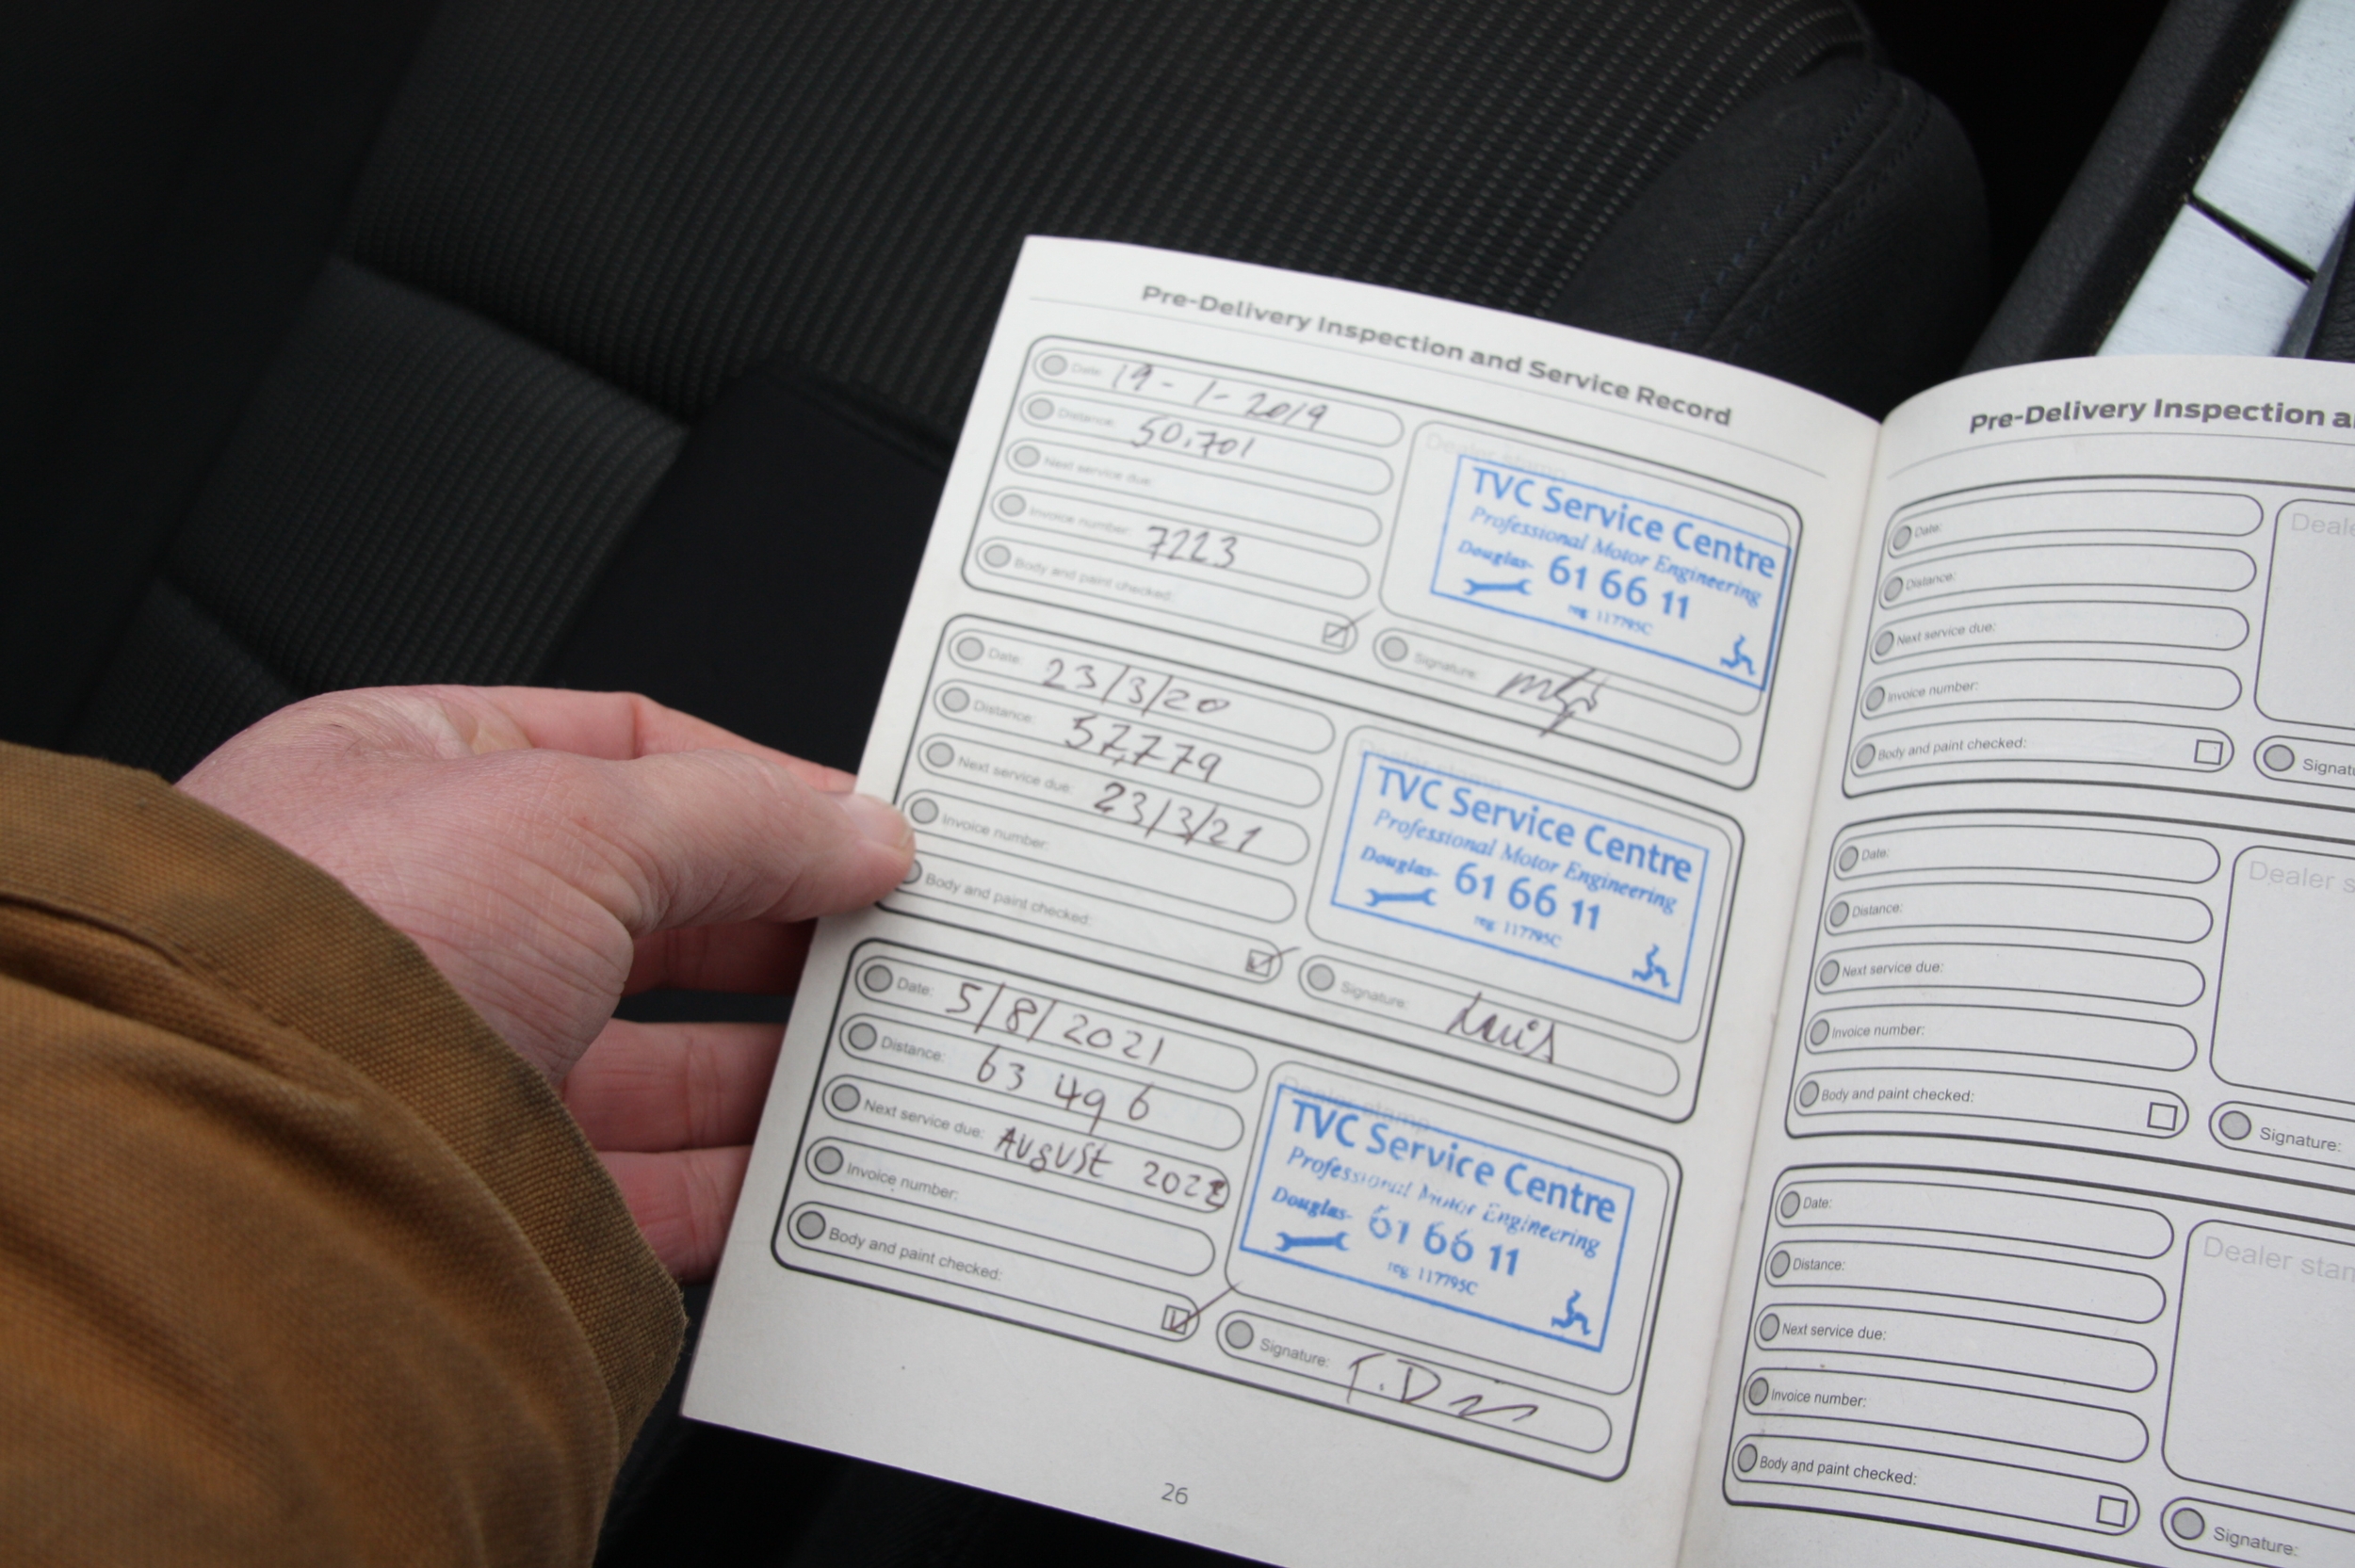 Pre-Delivery Inspection and Service Record
Date: 19-1-2019
Distance: 50.701
Next service due:
Invoice number: 7223
Body and paint checked:
Dealer stamp
TVC Service Centre
Professional Motor Engineering
Douglas- 61 66 11
reg. 117795C
Signature:
Date: 23/3/20
Distance: 57,779
Next service due: 23/3/21
Invoice number:
Body and paint checked:
Dealer stamp
TVC Service Centre
Professional Motor Engineering
Douglas- 61 66 11
reg. 117795C
Signature: Luis
Date: 5/8/2021
Distance: 63 496
Next service due: AUgUSt 2022
Invoice number:
Body and paint checked:
Dealer stamp
TVC Service Centre
Professional Motor Engineering
Douglas- 61 66 11
reg. 117795C
Signature:
26
Pre-Delivery Inspection a
Date:
Distance:
Next service due:
Invoice number:
Body and paint checked:
Deale
Signatu
Date:
Distance:
Next service due:
Invoice number:
Body and paint checked:
Dealer s
Signature:
Date:
Distance:
Next service due:
Invoice number:
Body and paint checked:
Dealer stam
Signature: